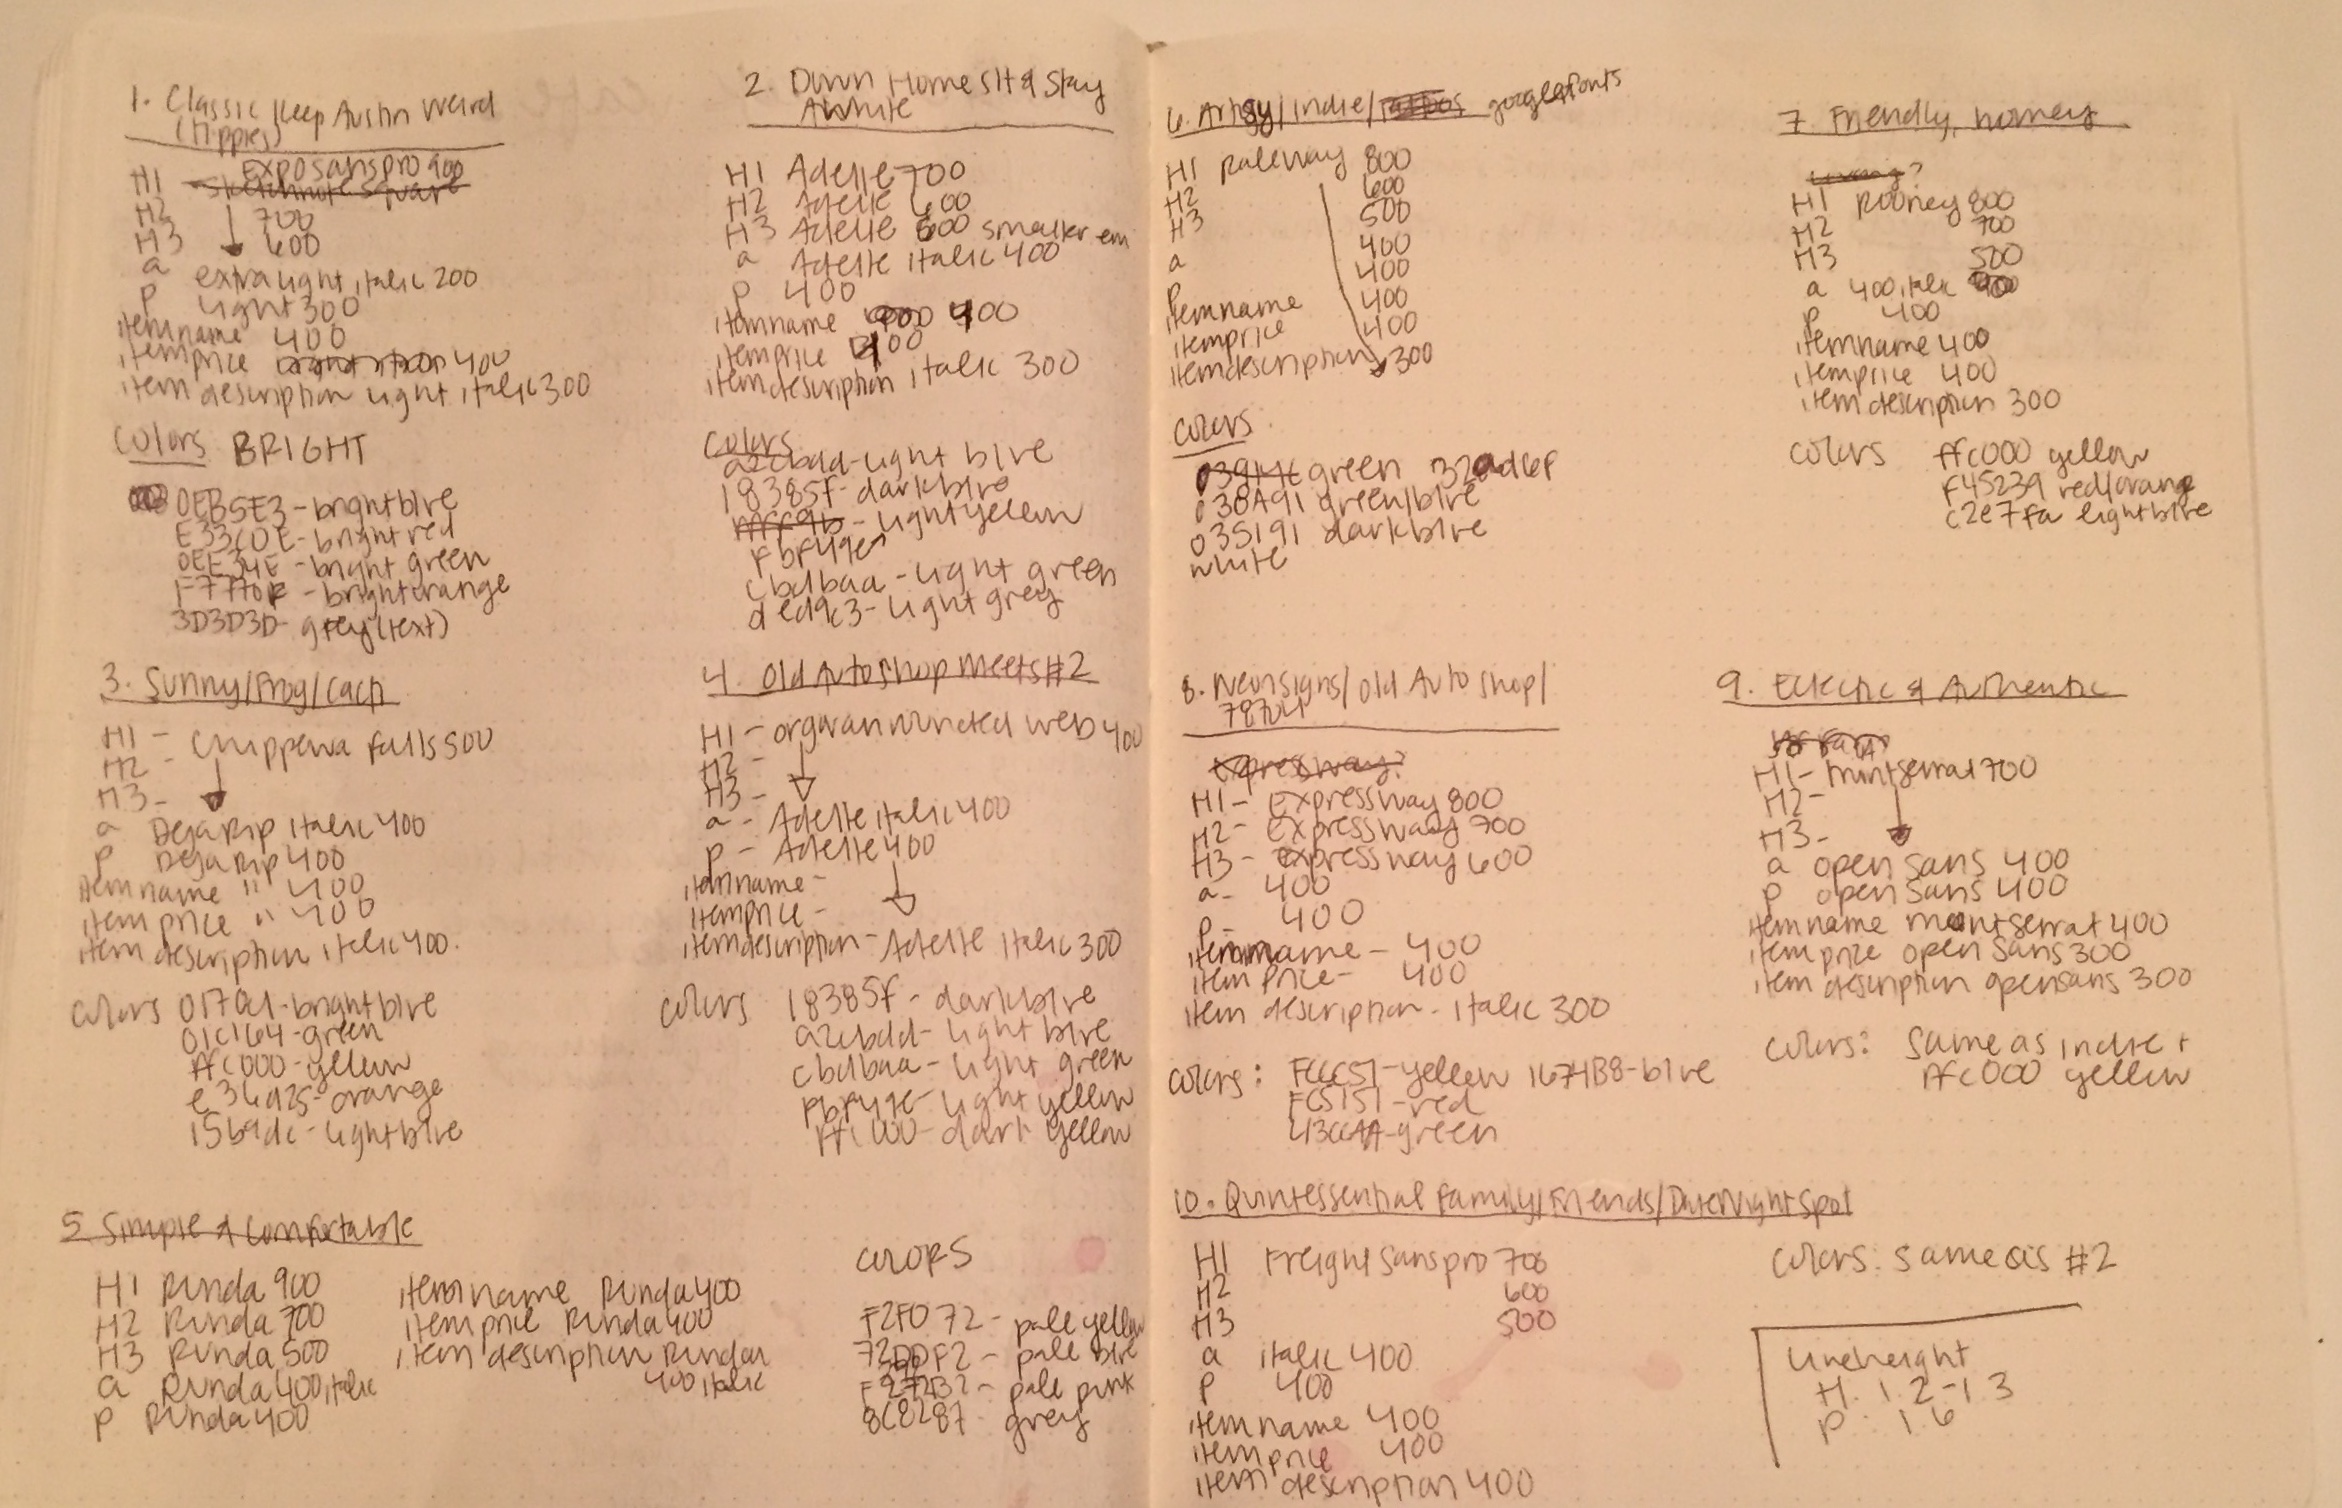 1. Classic Keep Austin Weird
(Hippies)
H1 Expo sans pro 900
H2 700
H3 600
a extra light, italic 200
p light 300
item name 400
item price 400
item description light italic 300
Colors BRIGHT
0EB5E3 - bright blue
E33C0E - bright red
0EE34E - bright green
- bright orange
3D3D3D - grey (text)
2. Down Home Sit & Stay
Awhile
H1 Adelle 700
H2 Adelle 600
H3 Adelle 600 smaller em
a Adelle italic 400
p 400
item name 400
item price 400
item description italic 300
Colors
a2cbdd - light blue
18385f - dark blue
- light yellow
fbf49e
cbdbaa - light green
ded9c3 - light grey
3. Sunny/Frog/Cach
H1 - Chippewa Falls 500
H2 -
H3 -
a Deja Rip italic 400
p Deja Rip 400
item name " 400
item price " 400
item description italic 400.
colors - bright blue
01c164 - green
ffc000 - yellow
e36d25 - orange
15b9dc - light blue
4. Old Auto Shop Meets #2
H1 - web 400
H2 -
H3 -
a - Adelle italic 400
p - Adelle 400
item name -
item price -
item description - Adelle italic 300
colors 18385f - dark blue
a2cbdd - light blue
cbdbaa - light green
fbf49e - light yellow
ffc000 - dark yellow
5 Simple & Comfortable
H1 Runda 900
H2 Runda 700
H3 Runda 500
a Runda 400 italic
p Runda 400
item name Runda 400
item price Runda 400
item description Runda
400 italic
colors
F2F072 - pale yellow
72DDF2 - pale blue
- pale pink
8C8287 - grey
6. Artsy/indie/ google fonts
H1 Raleway 800
H2 600
H3 500
a 400
p 400
item name 400
item price 400
item description 300
colors
green 32ad6f
038A91 green/blue
035191 dark blue
white
7. Friendly, homey
H1 Rooney 800
H2 700
H3 500
a 400 italic
p 400
item name 400
item price 400
item description 300
colors ffc000 yellow
f45239 red/orange
c2e7fa light blue
8. Neon signs/Old Auto Shop/
78704
Expressway?
H1 - Expressway 800
H2 - Expressway 700
H3 - Expressway 600
a - 400
p - 400
item name - 400
item price - 400
item description - italic 300
colors: FCCC51 - yellow 1674B8 - blue
FC5151 - red
43CCAA - green
9. Eclectic & Authentic
H1 - Montserrat 700
H2 -
H3 -
a open sans 400
p open sans 400
item name montserrat 400
item price open sans 300
item description open sans 300
colors: Same as indie +
ffc000 yellow
10. Quintessential Family/Friends/Date Night Spot
H1 Freight Sans pro 700
H2 600
H3 500
a italic 400
p 400
item name 400
item price 400
item description 400
colors: same as #2
Lineheight
H: 1.2-1.3
p: 1.6